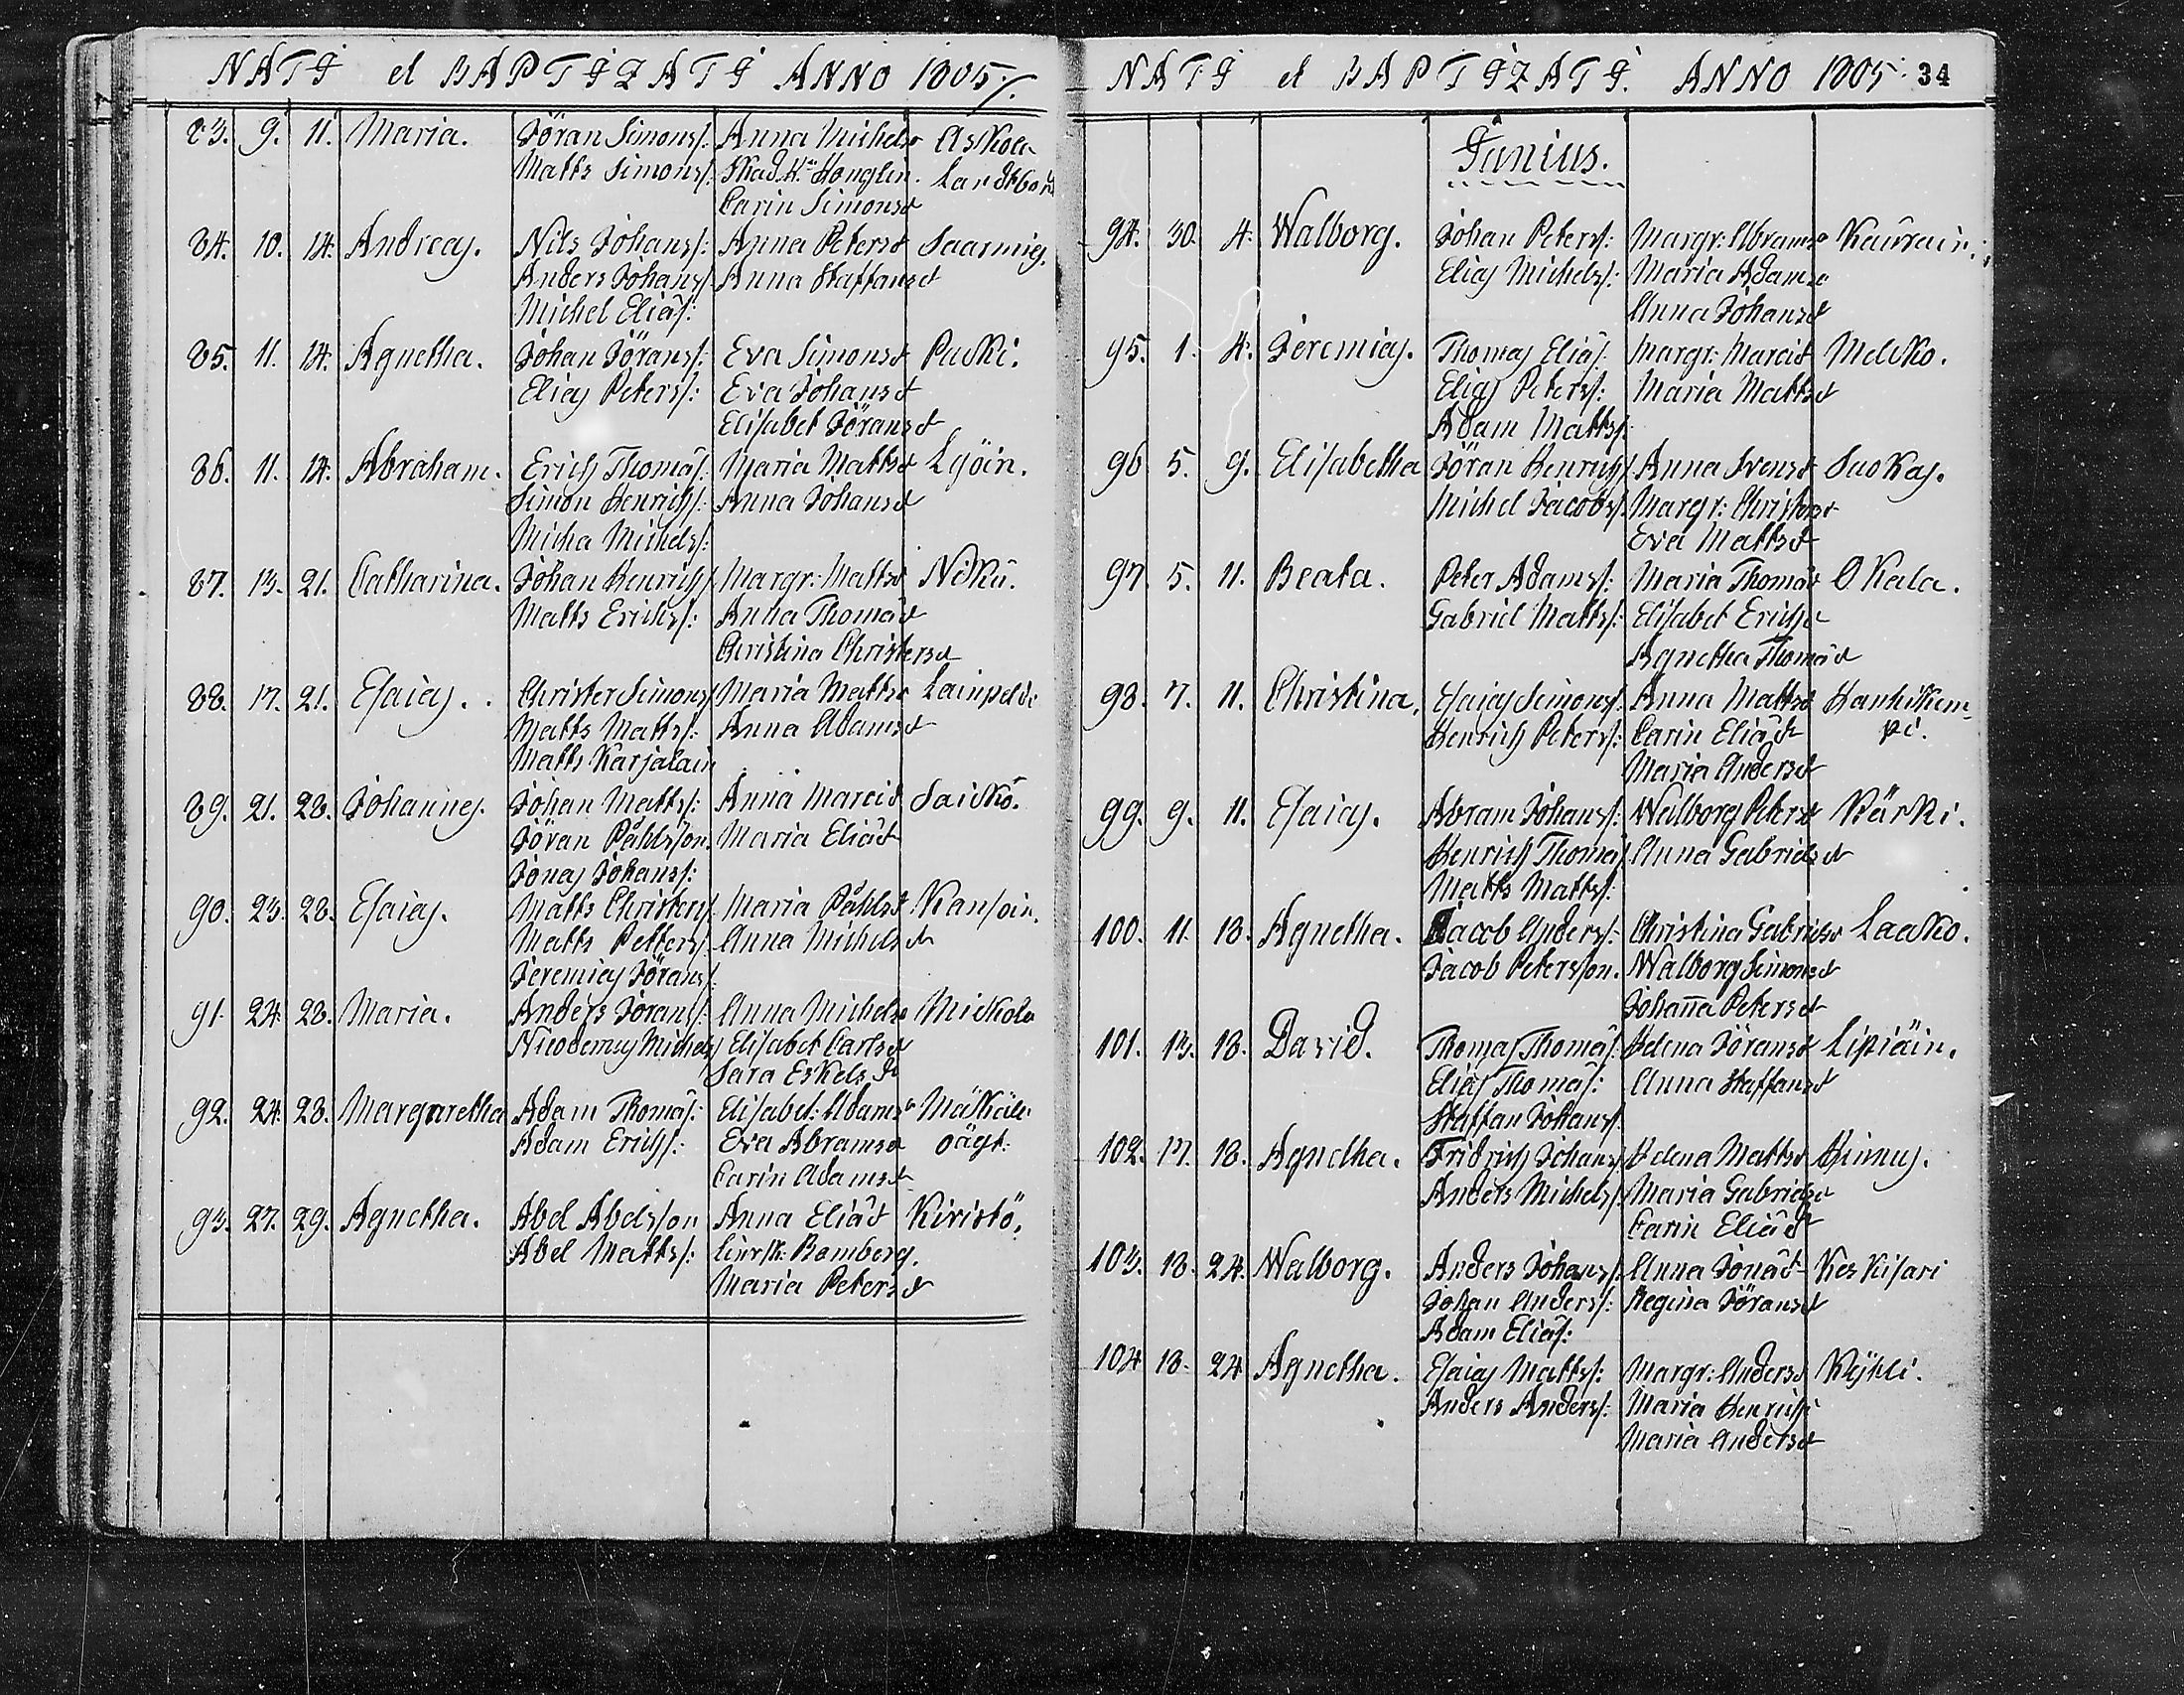 NATI et BAPTIZATI ANNO 1805.
83. 9. 11. Maria. Jöran Simonss: Anna Michelsd Askola
Matts Simonss: Landtbon
Carin Simonsd
84. 10. 14. Andreas. Nils Johanss: Anna Petersd Saarning.
Anders Johanss Anna Staffansd
Michel Eliæs:
85. 11. 14. Agnetha. Johan Jöranss: Eva Simonsd Paski.
Elias Peterss: Eva Johansd
Elisabet Jöransd
86. 11. 14. Abraham. Erich Thomæs: Maria Mattsd Lyöin.
Simon Henrichs: Anna Johansd
Micha Michelss:
87. 13. 21. Catharina. Johan Henrichs Margr: Mattsd Nokù.
Matts Erichss: Anna Thomæd
Christina Christersd
88. 17. 21. Esaias. Christer Simonss Maria Mattsd Lainpeldi
Matts Mattss: Anna Adamsd
Matts Karjalain
89. 21. 28. Johannes. Johan Mattss: Anna Marcid Saickö.
Jöran Påhlsson Maria Eliæd
Jonas Johanss:
90. 23. 28. Esaias. Matts Christerss Maria Påhlsd Kansoin.
Matts Petterss Anna Michelsd
Jeremias Jöranss
91. 24. 28. Maria. Anders Jöranss: Anna Michelsd Mickola
Nicodemus Michelss Elisabet Carlsd
Sara Eskelsd
92. 24. 28. Margaretha Adam Thomæs: Elisabet: Adamsd
Adam Erichs: Eva Abramsd
Carin Adamsd
93. 27. 29. Agnetha. Abel Abelsson Anna Eliæd Kiristö.
Abel Mattss: Bamberg.
Maria Petersd
NATI et BAPTIZATI. ANNO 1805. 34
Junius.
94. 30. 4. Walborg. Johan Peterss: Margr: Abramsd Kaurain.
Elias Michelss: Maria Adamsd
Anna Johansd
95. 1. 4. Jeremias. Thomas Eliæs: Margr: Marcid Melcko.
Elias Peterss: Maria Mattsd
Adam Mattss:
96 5. 9. Elisabetha Jöran Henrichs Anna Svensd Suokas.
Michel Jacobss Margr: Christersd
Eva Mattsd
97. 5. 11. Beata. Peter Adamss: Maria Thomæd Okala.
Gabriel Mattss: Elisabet Erichsd
Agnetha Thomæd
98. 7. 11. Christina. Esaias Simonss: Anna Mattsd Hankikem-
Henrich Peterss: Carin Eliæd pi.
Maria Andersd
99. 9. 11. Esaias. Abram Johanss: Walborg Petersd Kärki.
Henrich Thomæs Anna Gabrielsd
Matts Mattss:
100. 11. 18. Agnetha. Jacob Anderss: Christina Gabrielsd Laako.
Jacob Petersson. Walborg Simonsd
Johanna Petersd
101. 13. 18. David. Thomas Thomæs: Helena Jöransd Lipiäin.
Elias Thomæs: Anna Staffansd
Staffan Johanss
102. 17. 18. Agnetha. Fridrich Johanss Helena Mattsd Hinnus.
Anders Michelss Maria Gabrielsd
Carin Eliæd
103. 18. 24. Walborg. Anders Johanss Anna Jonæd Keskisari
Johan Anderss: Regina Jöransd
Adam Eliæs:
104 18. 24. Agnetha. Esaias Mattss: Margr: Andersd Kÿkli.
Anders Anderss: Maria Henrichs
Maria Andersd